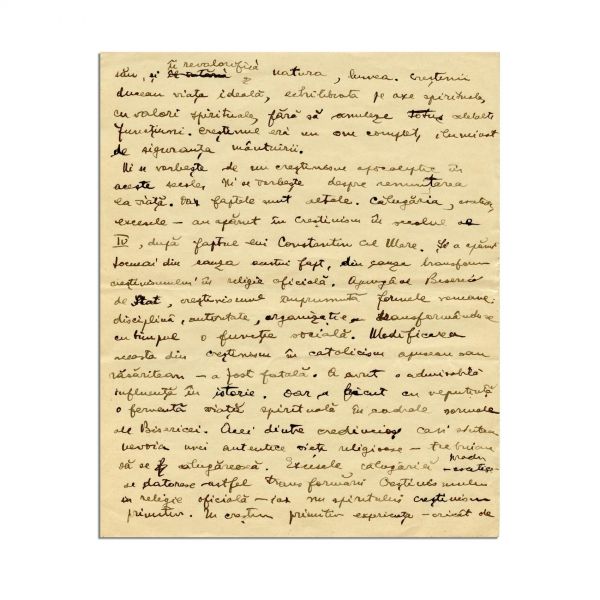 îi revalorifică
său, și natura, lumea. Creștinii
duceau viața ideală, echilibrată pe axe spirituale,
cu valori spirituale, fără să anuleze totuș celelalte
funcțiuni. Creștinul era un om complet, iluminat
de siguranța mântuirii.
Ni se vorbește de un creștinism apocaliptic în
aceste secole. Ni se vorbește despre renunțarea
la viață. Dar faptele sunt altele. Călugăria,
excesele - au apărut în Creștinism în secolul al
IV, după faptul lui Constantin cel Mare. Și a apărut
tocmai din cauza acestui fapt, din cauza transform
creștinismului în religie oficială. Ajungând Biserică
de Stat, creștinismul împrumută formele romane:
disciplină, autoritate, organizație, transformându-se
cu timpul o funcție socială. Modificarea
aceasta din creștinism în catolicism apusean sau
răsăritean - a fost fatală. A avut o admirabilă
influență în istorie. Dar a făcut cu neputință
o fermentă viață spirituală în cadrele normale
ale Bisericii. Acei dintre credincioși cari simțeau
nevoia unei autentice vieți religioase - trebuiau
să se călugărească. Excesele călugăriei
se datoresc astfel transformării Creștinismului
în religie oficială - iar nu spiritului creștinism
primitiv. Un creștin primitiv - oricât de